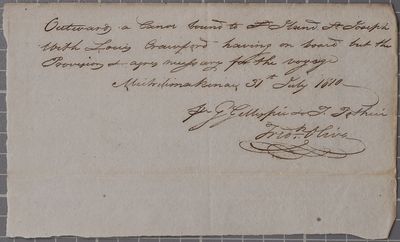 Outward, a Canoe bound to St Joseph
With Louis Crawford having on board but the
Provision & agrès necessary for the voyage
Michilimakinac, 31st July 1810
for G. Gillespie
Fredk Oliva